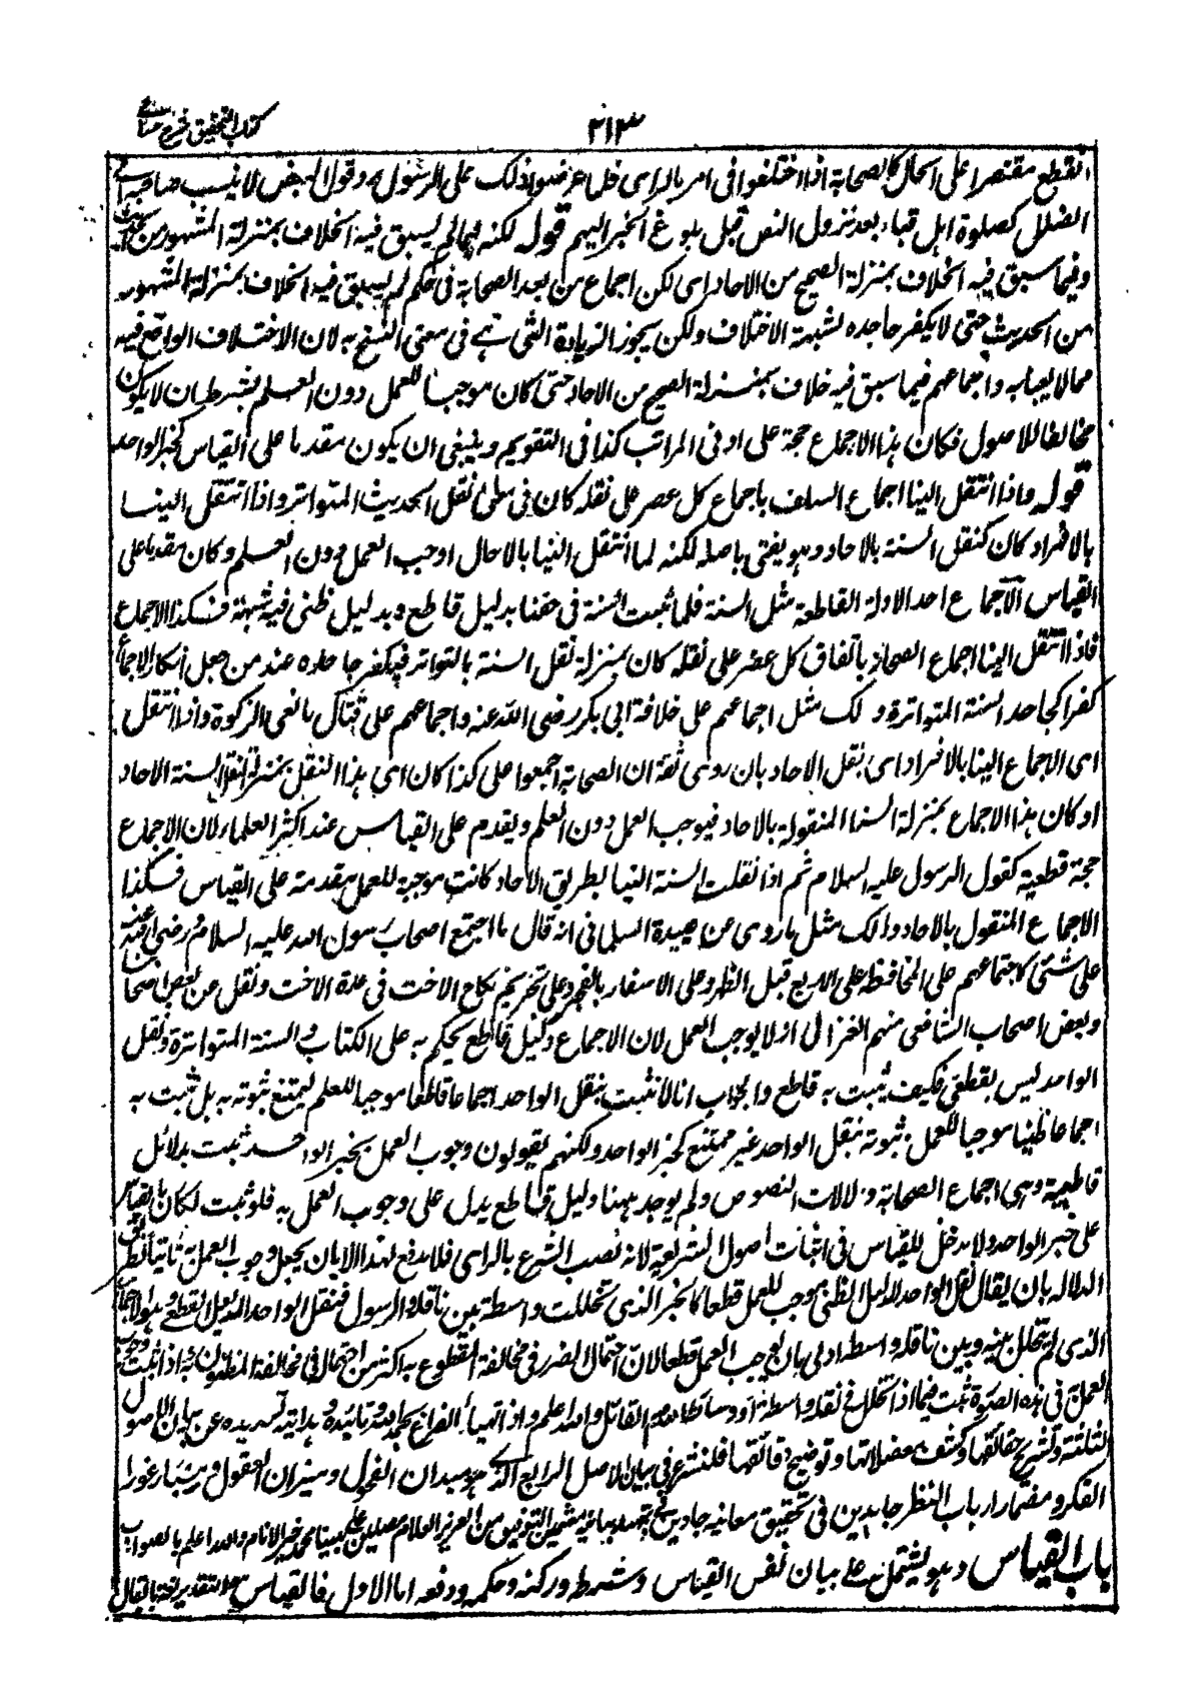 كتاب التحقيق شرح حسامى
٢١٣
انقطع مقتصرا على الحال كالصحابة اذا اختلفوا فى امر بالراى فلما عرضوا ذلك على الرسول وقول البعض لا ينسب صاحبه الى
الضلال كصلوة اهل قباء بعد نزول النص قبل بلوغ الخبر اليهم قوله لكنه فيما لم يسبق فيه الخلاف بمنزلة المشهور من الحديث
وفيما سبق فيه الخلاف بمنزلة الصحيح من الاحاد اى لكن اجماع من بعد الصحابة فى حكم لم يسبق فيه الخلاف بمنزلة المشهور
من الحديث حتى لا يكفر جاحده لشبهة الاختلاف ولكن يجوز الزيادة التى هى فى معنى النسخ به لان الاختلاف الواقع فيه
مما لا يعبا به واجماعهم فيما سبق فيه خلاف بمنزلة الصحيح من الاحاد حتى كان موجبا للعمل دون العلم بشرط ان لا يكون
مخالفا للاصول فكان هذا الاجماع حجة على ادنى المراتب كذا فى التقويم وينبغى ان يكون مقدما على القياس كخبر الواحد
قوله واذا انتقل الينا اجماع السلف باجماع كل عصر على نقله كان فى معنى نقل الحديث المتواتر واذا انتقل الينا
بالافراد كان كنقل السنة بالاحاد وهو يقينى باصله لكنه لما انتقل الينا بالاحاد اوجب العمل دون العلم وكان مقدما على
القياس الاجماع احد الادلة القاطعة مثل السنة فلما ثبت السنة فى حقنا بدليل قاطع وبدليل ظنى فيه شبهة فكذا الاجماع
فاذا انتقل الينا اجماع الصحابة باتفاق كل عصر على نقله كان بمنزلة نقل السنة بالتواتر فيكفر جاحده عند من جعل انكار الاجماع
كفرا كجاحد السنة المتواترة وذلك مثل اجماعهم على خلافة ابى بكر رضى الله عنه واجماعهم على قتال مانعى الزكوة واذا انتقل
اى الاجماع الينا بالافراد اى بنقل الاحاد بان روى ثقة ان الصحابة اجمعوا على كذا كان اى هذا النقل بمنزلة نقل السنة الاحاد
او كان هذا الاجماع بمنزلة السنة المنقولة بالاحاد فيوجب العمل دون العلم ويقدم على القياس عند اكثر العلماء لان الاجماع
حجة قطعية كقول الرسول عليه السلام ثم اذا نقلت السنة الينا بطريق الاحاد كانت موجبة للعمل مقدمة على القياس فكذا
الاجماع المنقول بالاحاد وذلك مثل ما روى عن عبيدة السلمانى انه قال ما اجتمع اصحاب رسول الله عليه السلام ورضى الله عنهم
على شئى كاجتماعهم على المحافظة على الاربع قبل الظهر وعلى الاسفار بالفجر وعلى تحريم نكاح الاخت فى عدة الاخت ونقل عن بعض اصحابنا
وبعض اصحاب الشافعى منهم الغزالى انه لا يوجب العمل لان الاجماع دليل قاطع يحكم به على الكتاب والسنة المتواترة ونقل
الواحد ليس بقطعى فكيف يثبت به قاطع والجواب انا لا نثبت بنقل الواحد اجماعا قاطعا موجبا للعلم ليمتنع ثبوته به بل ثبت به
اجماعا ظنيا موجبا للعمل ثبوته بنقل الواحد غير ممتنع كخبر الواحد ولكنهم يقولون وجوب العمل بخبر الواحد ثبت بدلائل
قاطعية وهى اجماع الصحابة ودلالات النصوص ولم يوجد ههنا دليل قاطع يدل على وجوب العمل به فلو ثبت لكان بالقياس
على خبر الواحد ولا مدخل للقياس فى اثبات اصول الشريعة لانه نصب الشرع بالراى فلا مدفع لهذا الا بان يجعل وجوب العمل ثابتا بطريق
الدلالة بان يقال نقل الواحد الدليل الظنى موجب للعمل قطعا كالخبر الذى تخللت واسطة بين ناقله والرسول فنقل الواحد الدليل القطعى وهو الاجماع
الذى لم يتخلل بينه وبين ناقله واسطة اولى بان يوجب العمل قطعا لان احتمال الضرر فى مخالفة المقطوع به اكثر من احتماله فى مخالفة المظنون به واذا ثبت وجوب
العمل فى هذه الصورة ثبت فيما اذا تخلل فى نقله واسطة او وسائط لعدم القائل والله اعلم واذ تهيأ الفراغ بحمد الله وتائيده وهدايته وتسديده عن بيان الاصول
الثلثة وتشريح حقائقها وكشف معضلاتها وتوضيح دقائقها فلنشرع فى بيان الاصل الرابع الذى هو ميدان الفحول وميزان العقول ومسبار غور
الفكر ومضمار ارباب النظر جاهدين فى تحقيق معانيه جادين فى تمهيد مبانيه مستمدين التوفيق من العزيز العلام مصلين على نبينا محمد خير الانام والله اعلم بالصواب
باب القياس وهو يشتمل على بيان نفس القياس وشرطه وركنه وحكمه ودفعه اما الاول فالقياس هو التقدير لغة يقال